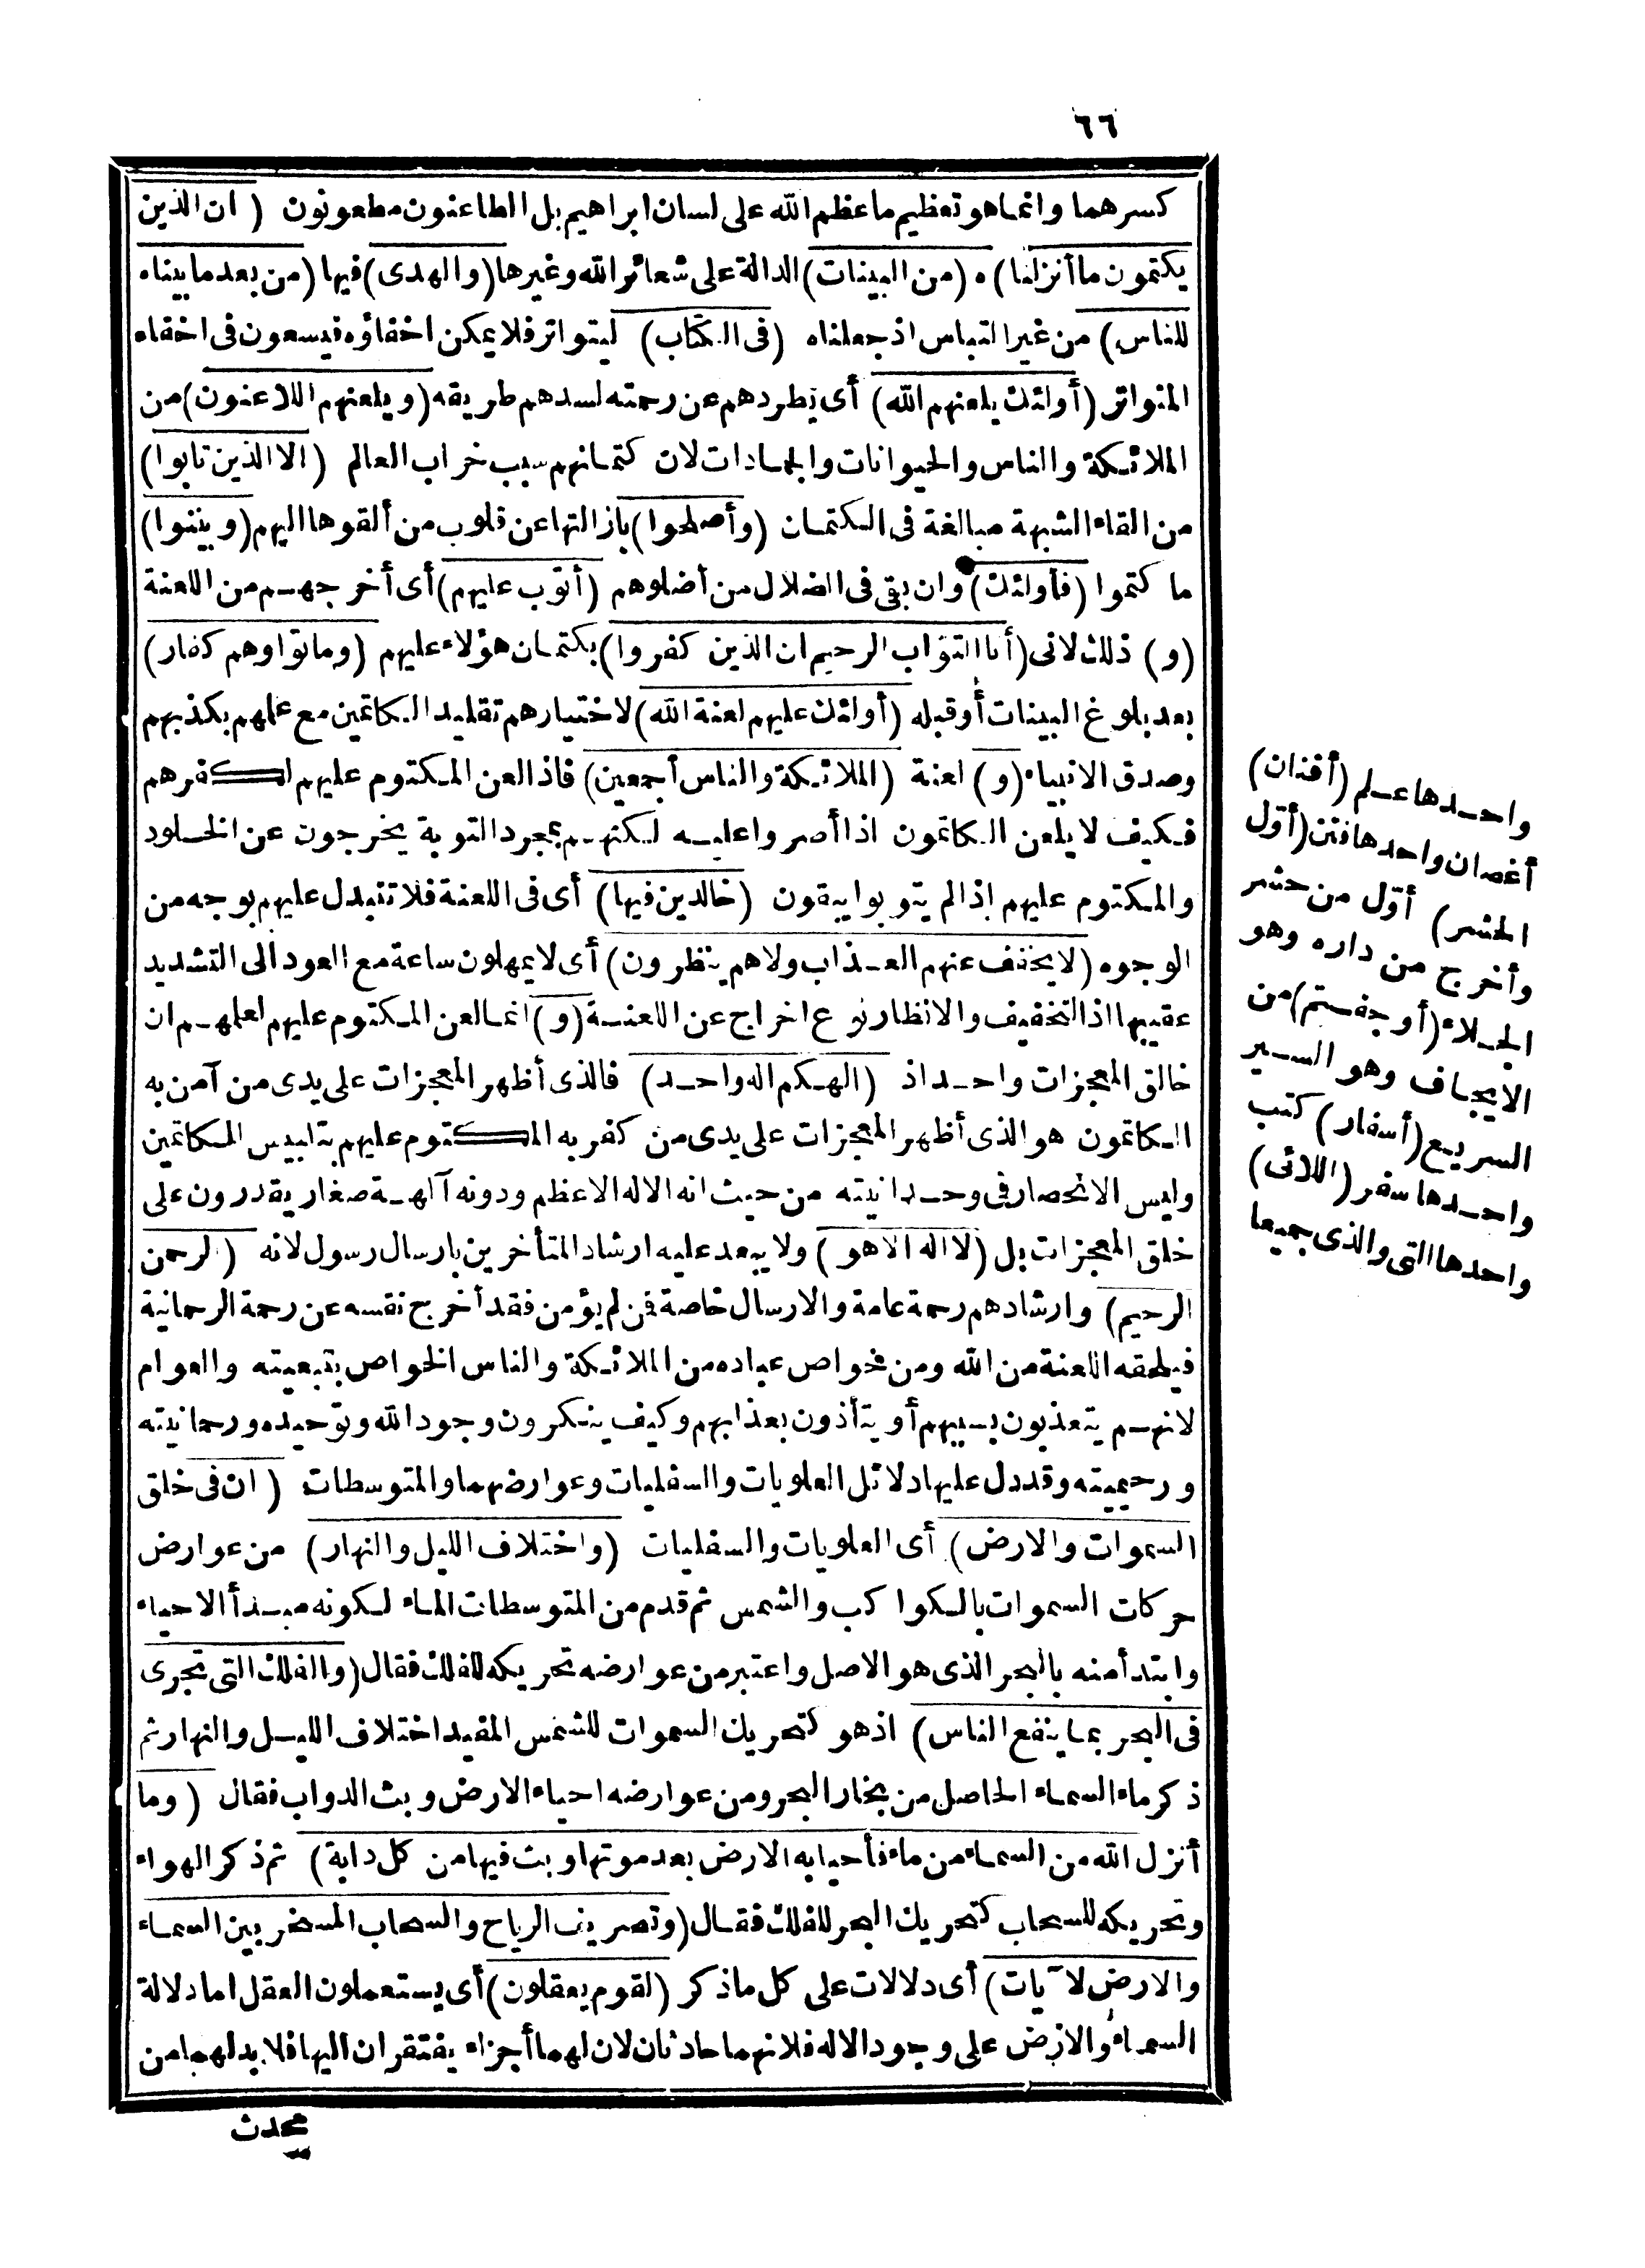 ٦٦
كسرهما وانما هو تعظيم ما عظم الله على لسان ابراهيم بل الطاعنون مطعونون (ان الذين
يكتمون ما أنزلنا) ه (من البينات) الدالة على شعائر الله وغيرها (والهدى) فيها (من بعد ما بيناه
للناس) من غير التباس اذ جعلناه (فى الكتاب) ليتواتر فلا يمكن اخفاؤه فيسعون فى اخفاء
المتواتر (أولئك يلعنهم الله) أى يطردهم عن رحمته لسدهم طريقه (ويلعنهم اللاعنون) من
الملائكة والناس والحيوانات والجمادات لان كتمانهم سبب خراب العالم (الا الذين تابوا)
من القاء الشبهة مبالغة فى الكتمان (وأصلحوا) بازالتها عن قلوب من ألقوها اليهم (وبينوا)
ما كتموا (فأولئك) وان بقى فى الضلال من أضلوهم (أتوب عليهم) أى أخرجهم من اللعنة
(و) ذلك لانى (أنا التواب الرحيم ان الذين كفروا) بكتمان هؤلاء عليهم (وماتوا وهم كفار)
بعد بلوغ البينات أوقبله (أولئك عليهم لعنة الله) لاختيارهم تقليد الكاتمين مع علمهم بكذبهم
وصدق الانبياء (و) لعنة (الملائكة والناس أجمعين) فاذا لعن المكتوم عليهم لكفرهم
فكيف لا يلعن الكاتمون اذا أصروا عليه لكنهم بمجرد التوبة يخرجون عن الخلود
والمكتوم عليهم اذ الم يتوبوا يبقون (خالدين فيها) أى فى اللعنة فلا تتبدل عليهم بوجه من
الوجوه (لا يخفف عنهم العذاب ولا هم ينظرون) أى لا يمهلون ساعة مع العود الى التشديد
عقيبها اذ التخفيف والانظار نوع اخراج عن اللعنة (و) انما لعن المكتوم عليهم لعلمهم ان
خالق المعجزات واحد اذ (الهكم اله واحد) فالذى أظهر المعجزات على يدى من آمن به
الكاتمون هو الذى أظهر المعجزات على يدى من كفر به المكتوم عليهم بتلبيس الكاتمين
وليس الانحصار فى وحدانيته من حيث انه الاله الاعظم ودونه آلهة صغار يقدرون على
خلق المعجزات بل (لا اله الا هو) ولا يبعد عليه ارشاد المتأخرين بارسال رسول لانه (الرحمن
الرحيم) وارشادهم رحمة عامة والارسال خاصة فمن لم يؤمن فقد أخرج نفسه عن رحمة الرحمانية
فيلحقه اللعنة من الله ومن خواص عباده من الملائكة والناس الخواص بتبعيته والعوام
لانهم يتعذبون بسببهم أو يتأذون بعذابهم وكيف ينكرون وجود الله وتوحيده ورحمانيته
ورحيميته وقد دل عليها دلائل العلويات والسفليات وعوارضهما والمتوسطات (ان فى خلق
السموات والارض) أى العلويات والسفليات (واختلاف الليل والنهار) من عوارض
حركات السموات بالكواكب والشمس ثم قدم من المتوسطات الماء لكونه مبدأ الاحياء
وابتدأ منه بالبحر الذى هو الاصل واعتبر من عوارضه تحريكه للفلك فقال (والفلك التى تجرى
فى البحر بما ينفع الناس) اذ هو كتحريك السموات للشمس المفيد اختلاف الليل والنهار ثم
ذكر ماء السماء الحاصل من بخار البحر ومن عوارضه احياء الارض وبث الدواب فقال (وما
أنزل الله من السماء من ماء فأحيا به الارض بعد موتها وبث فيها من كل دابة) ثم ذكر الهواء
وتحريكه للسحاب كتحريك البحر للفلك فقال (وتصريف الرياح والسحاب المسخر بين السماء
والارض لآيات) أى دلالات على كل ما ذكر (لقوم يعقلون) أى يستعملون العقل اما دلالة
السماء والارض على وجود الاله فلانهما حادثان لان لهما أجزاء يفتقران اليها فلا بد لهما من
محدث
واحدها علم (أفنان)
أغصان واحدها فنن (أول
الحشر) أول من حشر
وأخرج من داره وهو
الجلاء (أوجفتم) من
الايجاف وهو السير
السريع (أسفار) كتب
واحدها سفر (اللائى)
واحدها التى والذى جميعا